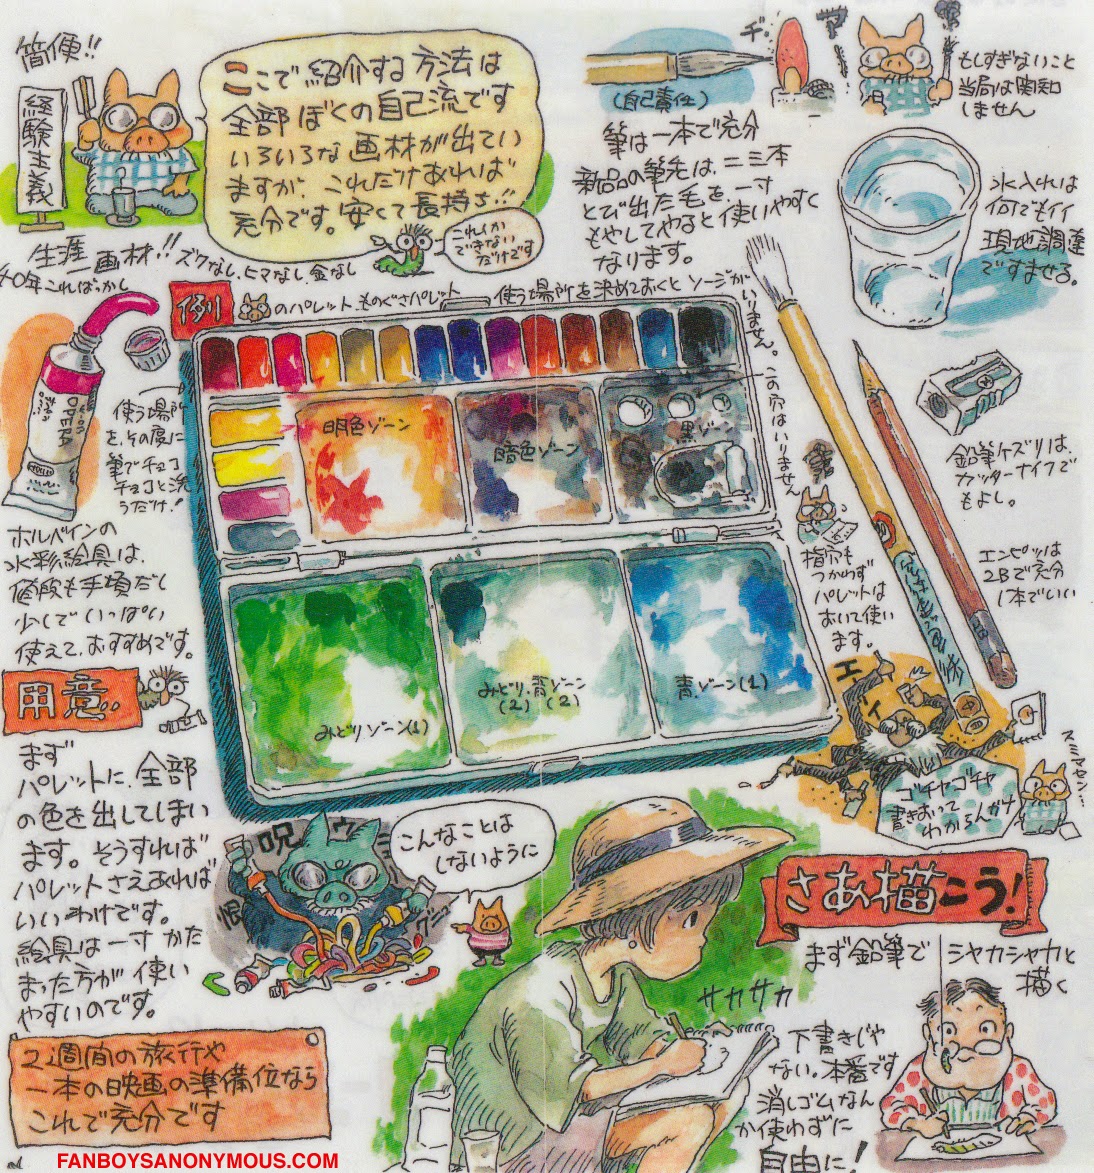 簡便!!
経験主義
ここで紹介する方法は
全部ぼくの自己流です
いろいろな画材が出てい
ますが、これだけあれば
充分です。安くて長持ち!!
これしか
できない
だけです
生涯一画材!! ズクなし、ヒマなし、金なし
40年こればっかし
(自己責任)
筆は一本で充分
新品の筆先は、二三本
とび出た毛を一寸
もやしてやると使いやすく
なります。
ヂ・
もしすぎないこと
当局は関知
しません
水入れは
何でもイイ
現地調達
ですませる。
例
のパレット、ものぐさパレット
使う場所を決めておくとソージが
いりません。
この穴はいりません
使う場所
を、その度に
筆でチョコ
チョコと洗
うだけ!
OPERA
明色ゾーン
暗色ゾーン
黒ゾーン
みどりゾーン(1)
みどり・青ゾーン
(2) (2)
青ゾーン(1)
鉛筆ケズリは、
カッターナイフで
もよし。
エンピツは
2Bで充分
1本でいい
指穴も
つかわず
パレットは
おいて使い
ます。
ホルベインの
水彩絵具は、
値段も手頃だし
少しでいっぱい
使えて、おすすめです。
用意..
まず
パレットに、全部
の色を出してしまい
ます。そうすれば
パレットさえあれば
いいわけです。
絵具は一寸かた
まった方が使い
やすいのです。
呪
恨
こんなことは
しないように
エーイ
ゴチャゴチャ
書きおって
わからんがナ
スミマセン…
さあ描こう!
まず鉛筆で
シャカシャカと
描く
サカサカ
下書きじゃ
ない。本番です
消しゴムなん
か使わずに
自由に!
2週間の旅行や
一本の映画の準備位なら
これで充分です
FANBOYSANONYMOUS.COM